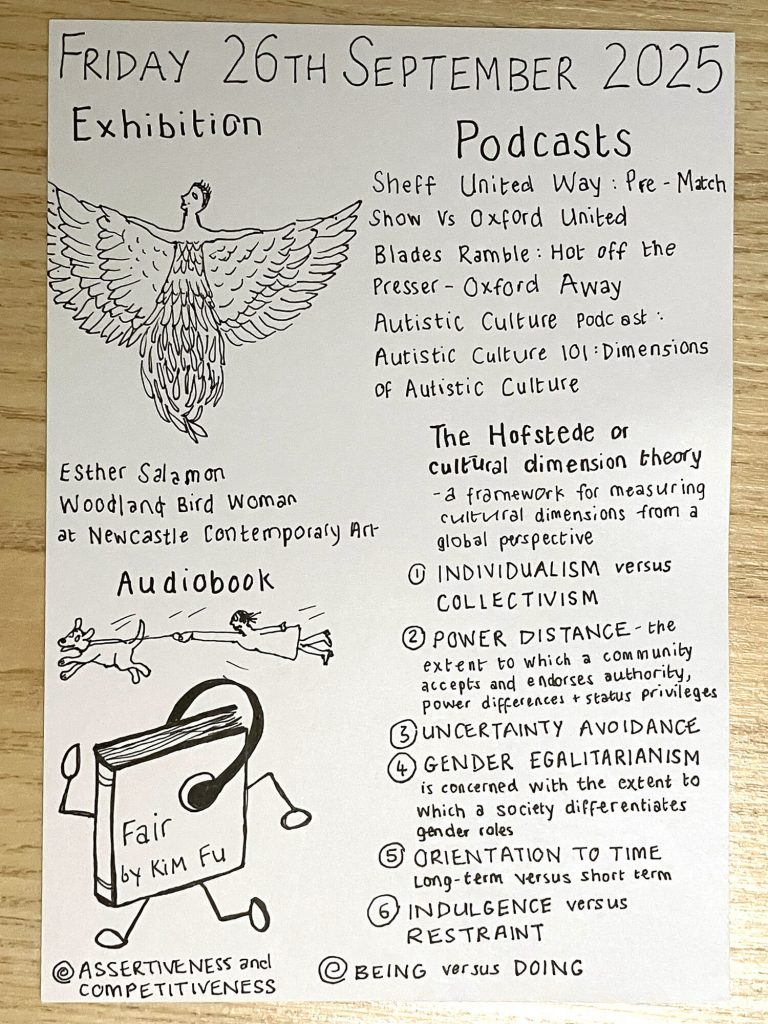 FRIDAY 26TH SEPTEMBER 2025
Exhibition
Esther Salamon
Woodland Bird Woman
at Newcastle Contemporary Art
Audiobook
Fair
by Kim Fu
Podcasts
Sheff United Way : Pre - Match
Show Vs Oxford United
Blades Ramble : Hot off the
Presser - Oxford Away
Autistic Culture Podcast :
Autistic Culture 101 : Dimensions
of Autistic Culture
The Hofstede or
cultural dimension theory
- a framework for measuring
cultural dimensions from a
global perspective
① INDIVIDUALISM versus
COLLECTIVISM
② POWER DISTANCE - the
extent to which a community
accepts and endorses authority,
power differences + status privileges
③ UNCERTAINTY AVOIDANCE
④ GENDER EGALITARIANISM
is concerned with the extent to
which a society differentiates
gender roles
⑤ ORIENTATION TO TIME
Long-term versus short term
⑥ INDULGENCE versus
RESTRAINT
ⓔ ASSERTIVENESS and
COMPETITIVENESS
ⓔ BEING versus DOING